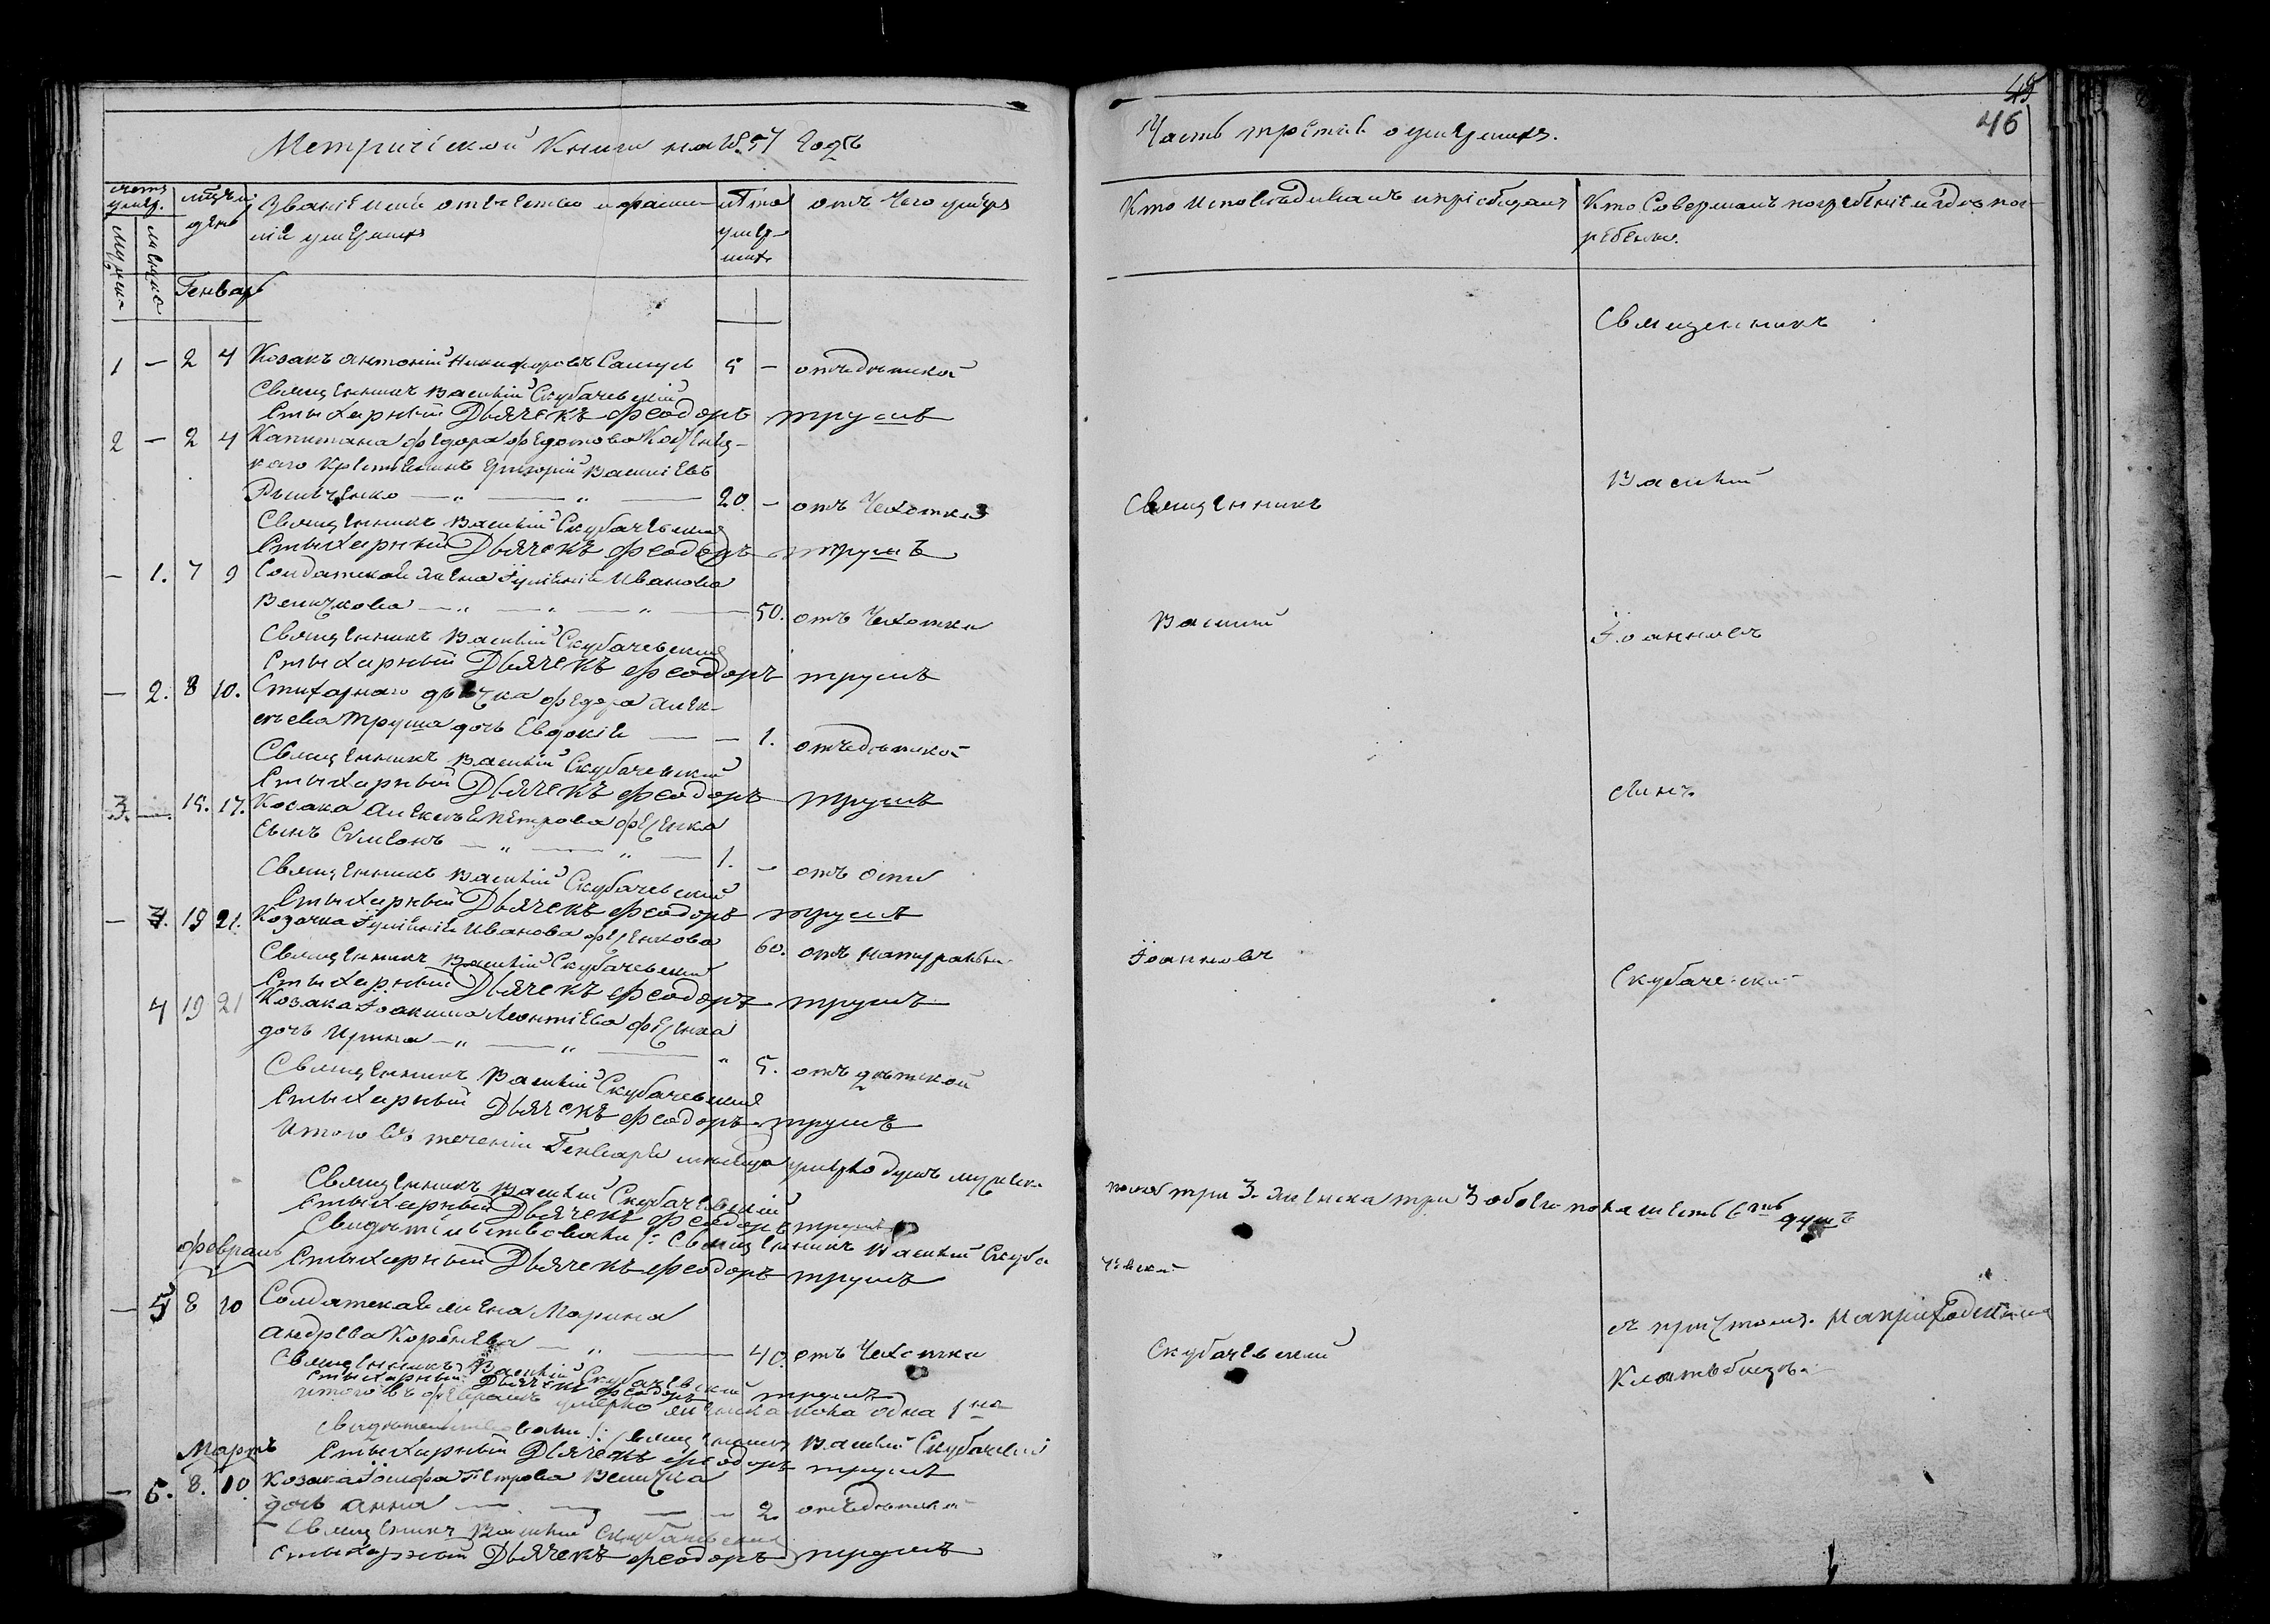 Метрической Книги на 1857 годъ
счетъ умер.
мужеска
женска
мѣсяцъ и день
Званіе имя отечество и фами-
лія умершихъ
лѣта
умер-
шихъ
отъ чего умеръ
Генварь
1 — 2 4 Козакъ Антоній Никифоровъ 5 — отъ дѣтской
Священникъ Василій Скубачевскій
Стыхарный Дьячекъ Феодоръ Трушъ
2 — 2 4 Капитана Федора Федотова
каго крестьянинъ Григорій Василіевъ
20. — отъ Чехотки
Священникъ Василій Скубачевскій
Стыхарный Дьячекъ Феодоръ Трушъ
— 1. 7 9 Солдатская жена Іуліанія Иванова
Величкова — „ — „ — „ — 50. отъ Чехотки
Священникъ Василій Скубачевскій
Стыхарный Дьячекъ Феодоръ Трушъ
— 2. 8 10. Стихарнаго дьячка Федора Алек-
сѣева Труша дочь Евдокія — — 1. отъ дѣтской
Священникъ Василій Скубачевскій
Стыхарный Дьячекъ Феодоръ Трушъ
3. — 15. 17. Козака Алексѣя Петрова Фесенка
сынъ Симеонъ — „ — „ — 1. — отъ оспы
Священникъ Василій Скубачевскій
Стыхарный Дьячекъ Феодоръ Трушъ
— 3. 19 21. Козачка Іуліанія Иванова Фесенкова 60. отъ натуральн
Священникъ Василій Скубачевскій
Стыхарный Дьячекъ Феодоръ Трушъ
4 19 21 Козака Іоакима Леонтіева Фесенка
дочь Ирина — „ — „ — „ 5. отъ дѣтской
Священникъ Василій Скубачевскій
Стыхарный Дьячекъ Феодоръ Трушъ
Итого въ теченіи Генваря мѣсяца умерло душъ мужеска
Священникъ Василій Скубачевскій
Стыхарный Дьячекъ Феодоръ Трушъ
Свидѣтельствовали: Священникъ Василій Скуба
Февраль Стыхарный Дьячекъ Феодоръ Трушъ
— 5 8 10 Солдатская жена Марина
Андреева Коренева — „ — 40. отъ Чехотки
Священникъ Василій Скубачевскій
Стыхарный Дьячекъ Феодоръ Трушъ
Итого въ Февралѣ умерло женска пола одна 1на
Свидѣтельствовали: Священникъ Василій Скубачевскій
Мартъ Стыхарный Дьячекъ Феодоръ Трушъ
— 6. 8. 10. Козака Іосифа Петрова Величка
дочь Анна — — — — 2. отъ дѣтской
Священникъ Василій Скубачевскій
Стыхарный Дьячекъ Феодоръ Трушъ
45
46
Часть третья о умершихъ.
Кто исповѣдывалъ и пріобщалъ
Кто Совершалъ погребеніе и гдѣ пог-
ребены.
Священникъ
Василій
Священникъ
Василій
Іоанновъ
сынъ
Іоанновъ
Скубачевскій
пола три 3. женска три 3 обоего пола шесть 6ть душъ
чевскій
Скубачевскій
съ причтомъ. на приходскомъ
Кладбищѣ